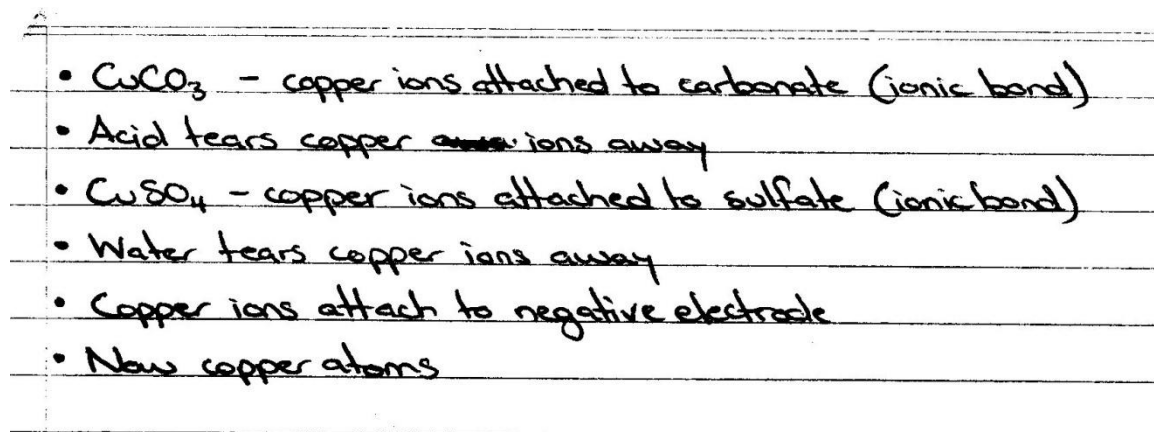 • CuCO₃ – copper ions attached to carbonate (ionic bond)
• Acid tears copper ions away
• CuSO₄ – copper ions attached to sulfate (ionic bond)
• Water tears copper ions away
• Copper ions attach to negative electrode
• Now copper atoms